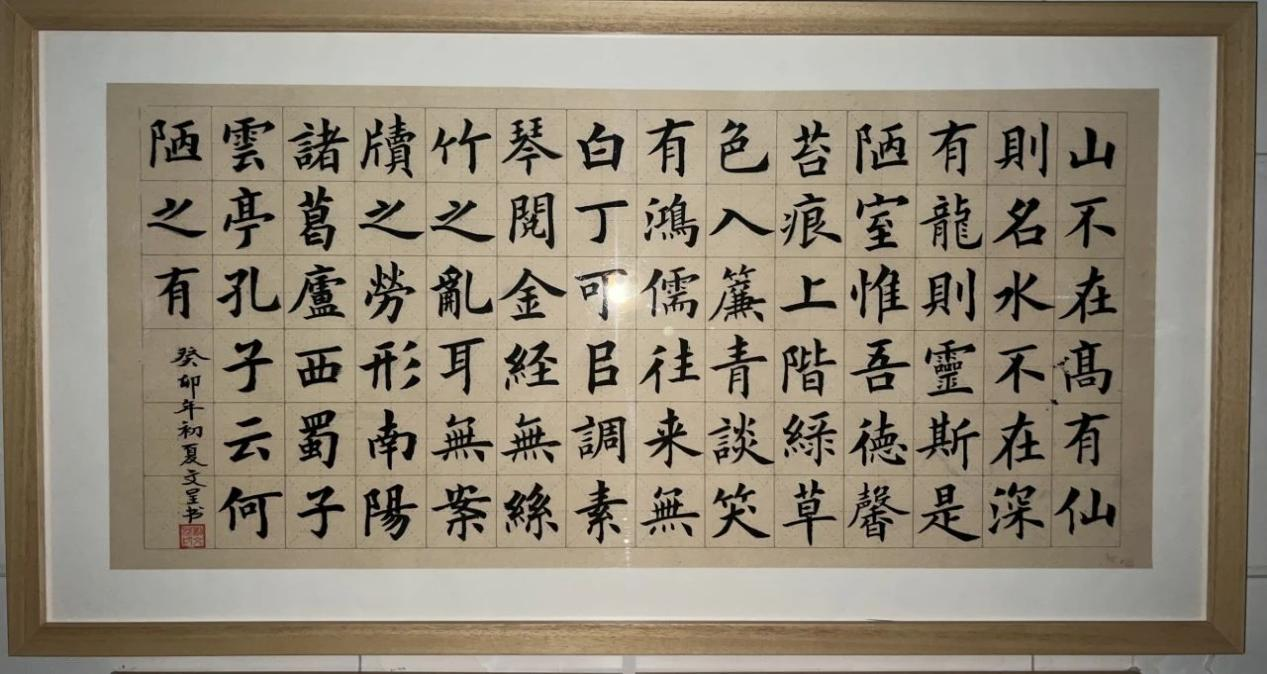 山不在髙有仙
則名水不在深
有龍則靈斯是
陋室惟吾徳馨
苔痕上階綠草
色入簾青談笑
有鴻儒往来無
白丁可㠯調素
琴閱金経無絲
竹之亂耳無案
牘之勞形南陽
諸葛廬西蜀子
雲亭孔子云何
陋之有
癸卯年初夏文呈书